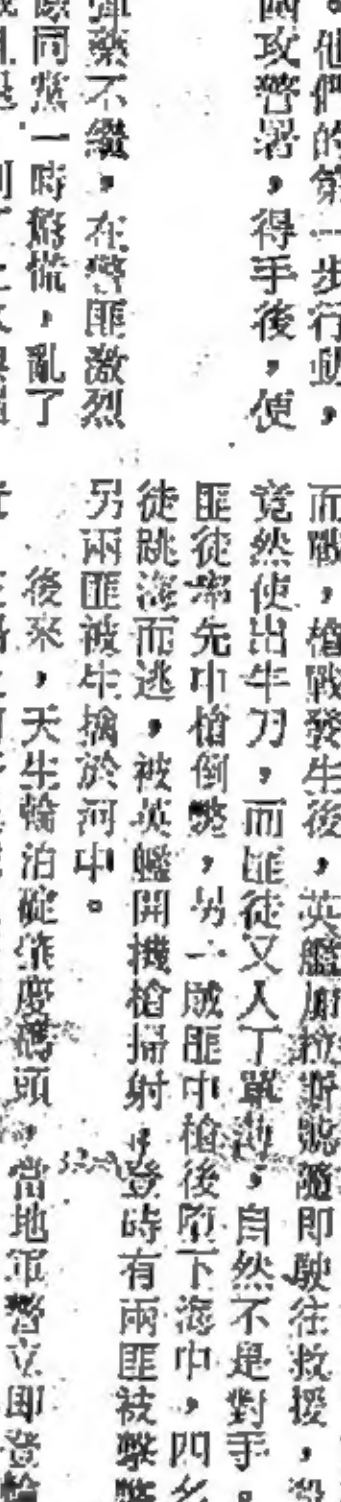 。他們的第一步行動，
攻警署，得手後，使
彈藥不繼，在警匪激烈
同黨一時慌，亂了
而戰，槍戰發生後，英艦斯號隨即駛往救援，
竟然使出牛刀，而匪徒又人丁單薄，自然不是對手。
匪徒率先中槍倒斃，另一賊匪中槍後墮下海中，四名
徒跳海而逃，被英艦開機槍掃射，登時有兩匪被擊斃
另兩匪被生擒於河中。
後來，天生輪泊碇肇慶碼頭，當地軍警立即登輪